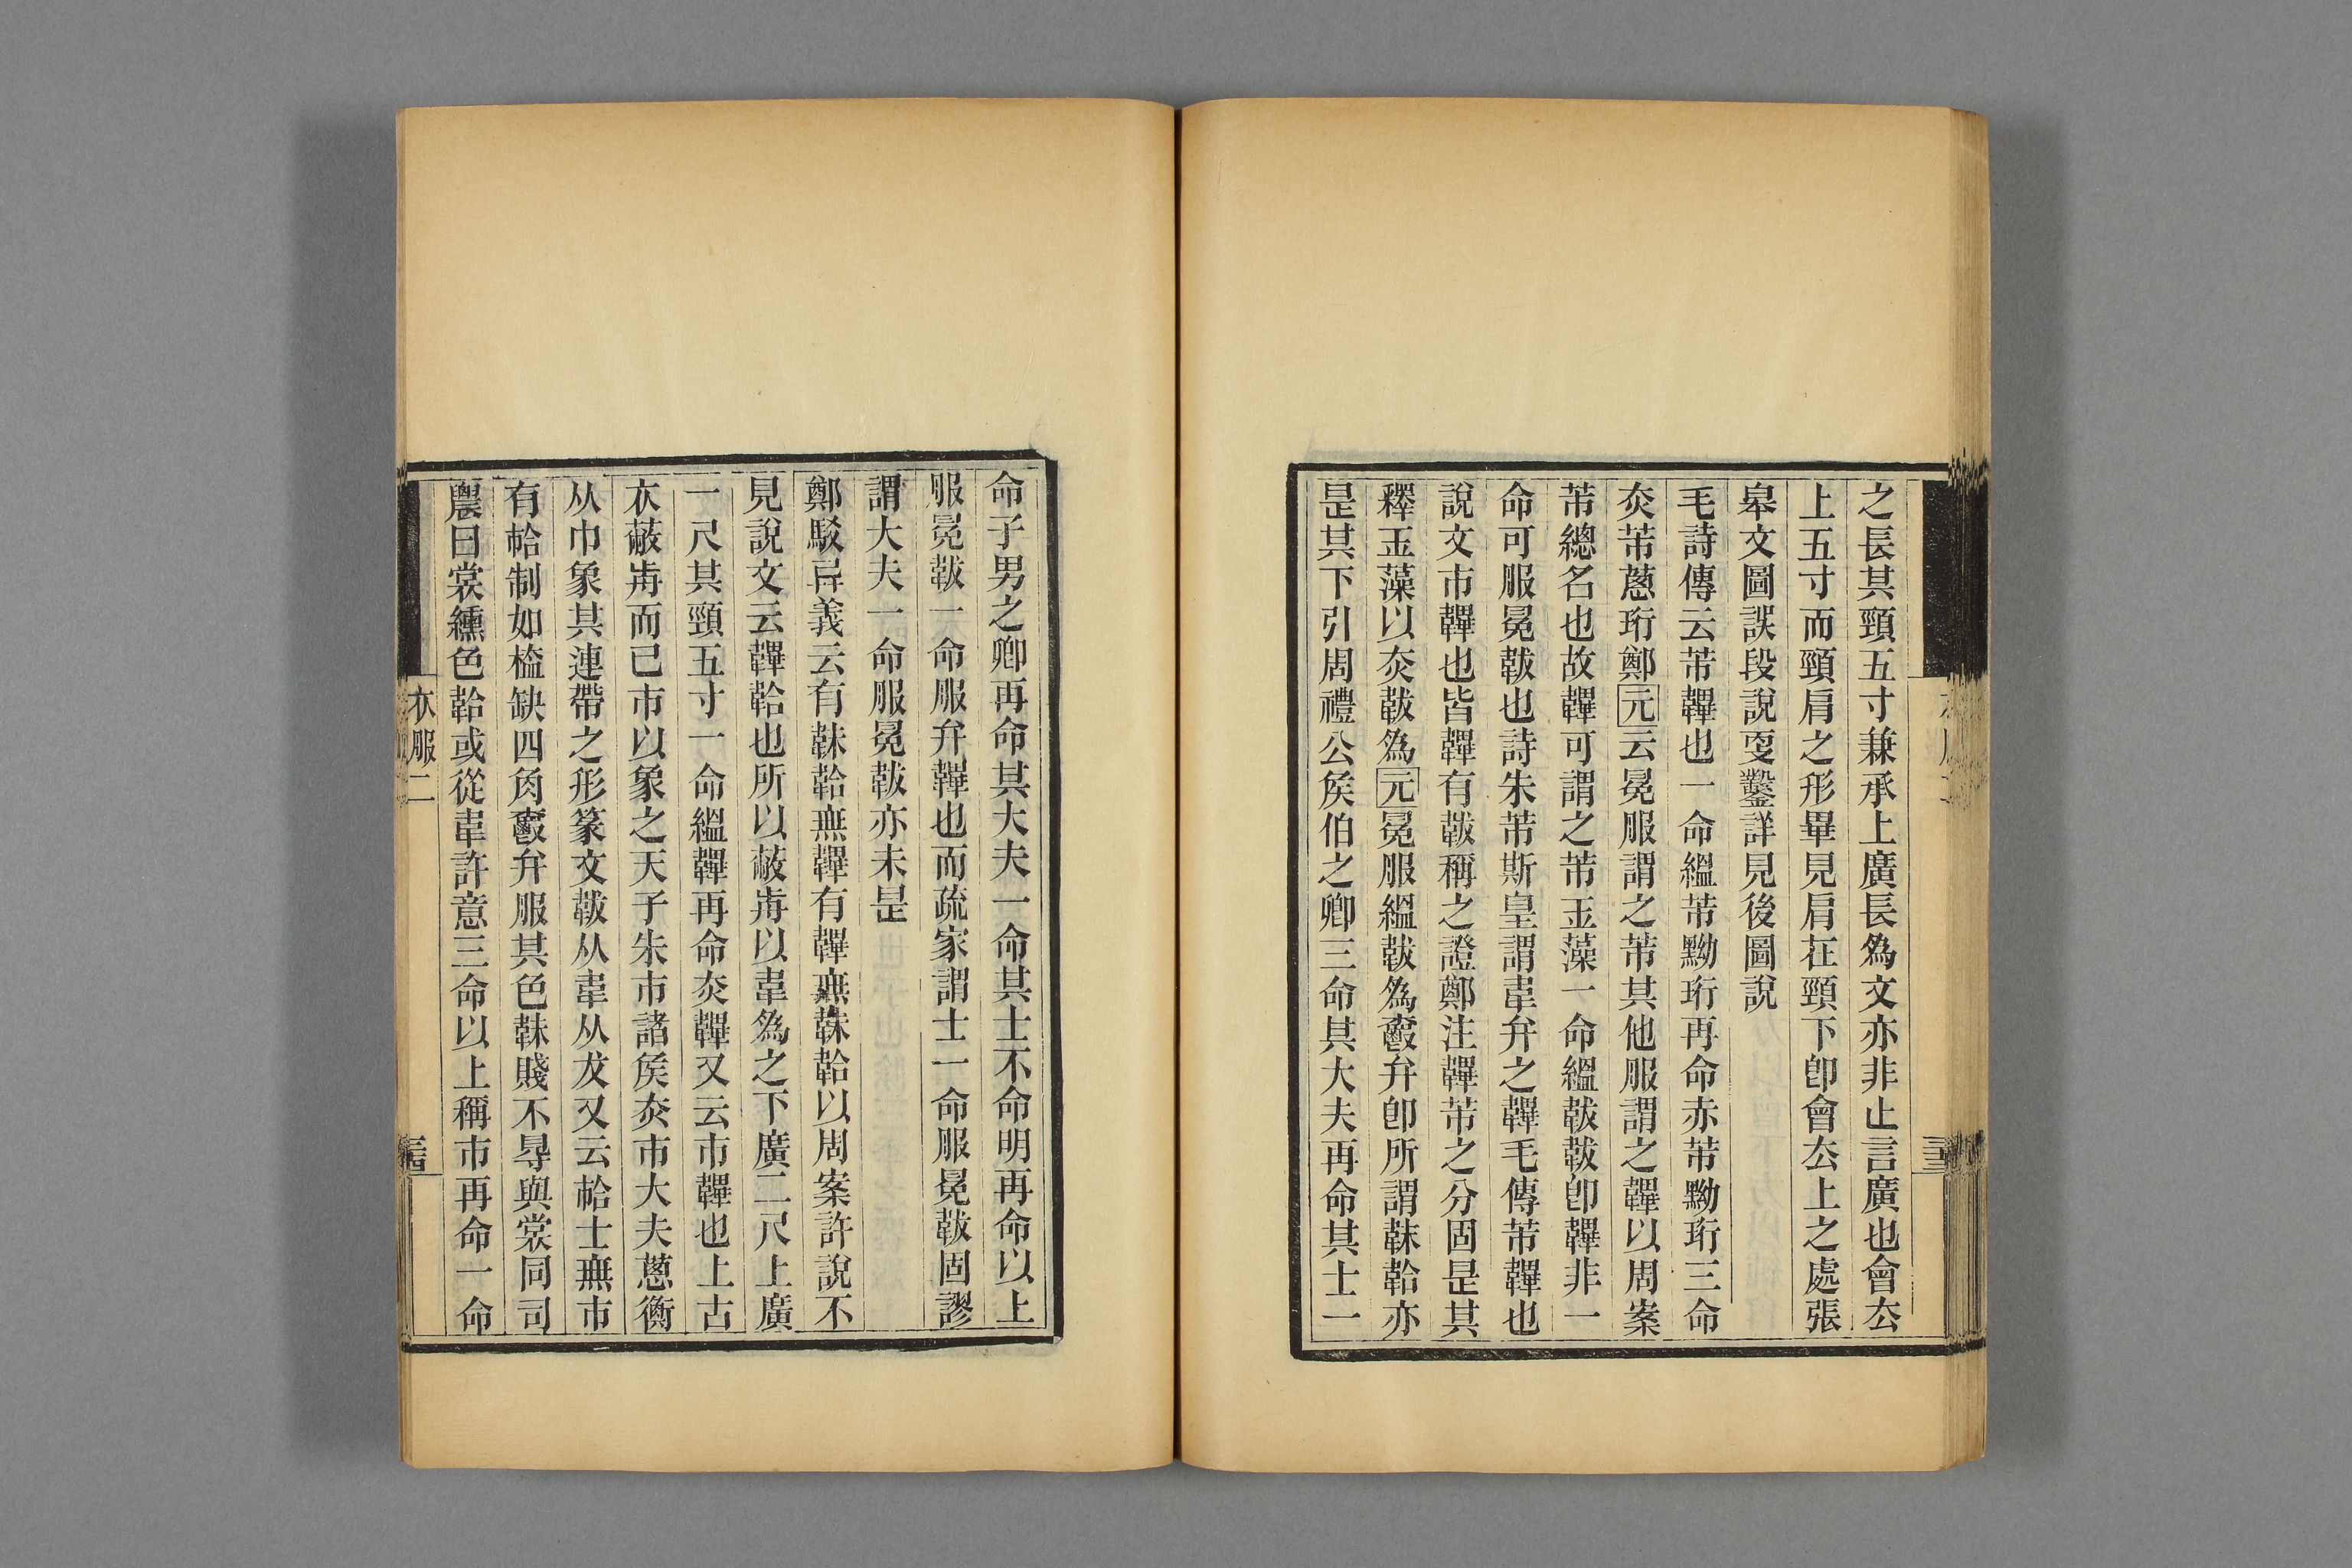 之長其頸五寸兼承上廣長爲文亦非止言廣也會厺
上五寸而頸肩之形畢見肩在頸下卽會厺上之處張
皋文圖誤段說㪅鑿詳見後圖說
毛詩傳云芾韠也一命縕芾黝珩再命赤芾黝珩三命
㶣芾蔥珩鄭元云冕服謂之芾其他服謂之韠以周案
芾總名也故韠可謂之芾玉藻一命縕韍韍卽韠非一
命可服冕韍也詩朱芾斯皇謂韋弁之韠毛傳芾韠也
說文巿韠也皆韠有韍稱之證鄭注韠芾之分固是其
釋玉藻以㶣韍爲元冕服縕韍爲爵弁卽所謂韎韐亦
是其下引周禮公矦伯之卿三命其大夫再命其士一
命子男之卿再命其大夫一命其士不命明再命以上
服冕韍一命服弁韠也而疏家謂士一命服冕韍固謬
謂大夫一命服冕韍亦未是
鄭駁異義云有韎韐無韠有韠無韎韐以周案許說不
見說文云韠韐也所以蔽歬以韋爲之下廣二尺上廣
一尺其頸五寸一命縕韠再命㶣韠又云巿韠也上古
衣蔽歬而已巿以象之天子朱巿諸矦㶣巿大夫蔥衡
从巾象其連帶之形篆文韍从韋从犮又云帢士無巿
有帢制如榼缺四角爵弁服其色韎賤不㝵與裳同司
農曰裳纁色韐或從韋許意三命以上稱巿再命一命
衣服二